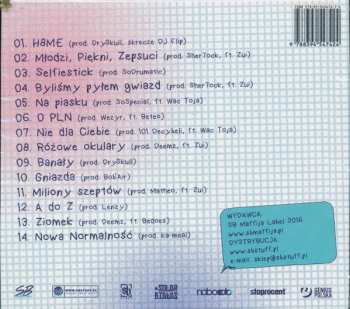 01. HAME (prod. DrySkull, skrecze DJ Flip)
02. Młodzi, Piękni, Zepsuci (prod. SherTock, ft. Zui)
03. Selfiestick (prod. SoDrumatic)
04. Byliśmy pyłem gwiazd (prod. SherTock, ft. Zui)
05. Na piasku (prod. SoSpecial, ft. Wac Toja)
06. O PLN (prod. Wezyr, ft. Beteo)
07. Nie dla Ciebie (prod. 101 Decybeli, ft. Wac Toja)
08. Różowe okulary (prod. Deemz, ft. Zui)
09. Banały (prod. DrySkull)
10. Gniazda (prod. BobAir)
11. Miliony szeptów (prod. Matheo, ft. Zui)
12. A do Z (prod. Lenzy)
13. Ziomek (prod. Deemz, ft. Bedoes)
14. Nowa Normalność (prod. ka-meal)
WYDAWCA
SB Maffija Label 2016
www.sbmaffija.pl
DYSTRYBUCJA
www.sbstuff.pl
e-mail: sklep@sbstuff.pl
SB
stoprocent
GENIUS POLSKA